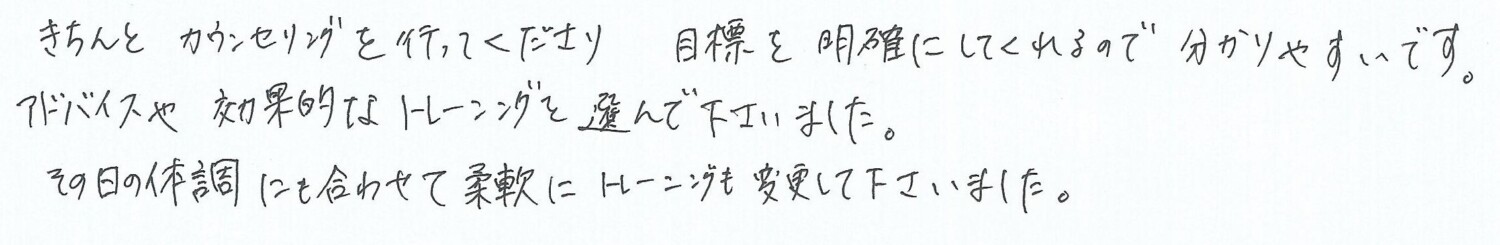 きちんと カウンセリングを行ってくださり 目標を 明確にしてくれるので 分かりやすいです。
アドバイスや 効果的な トレーニングを選んで下さいました。
その日の体調にも合わせて柔軟に トレーニングも変更して下さいました。